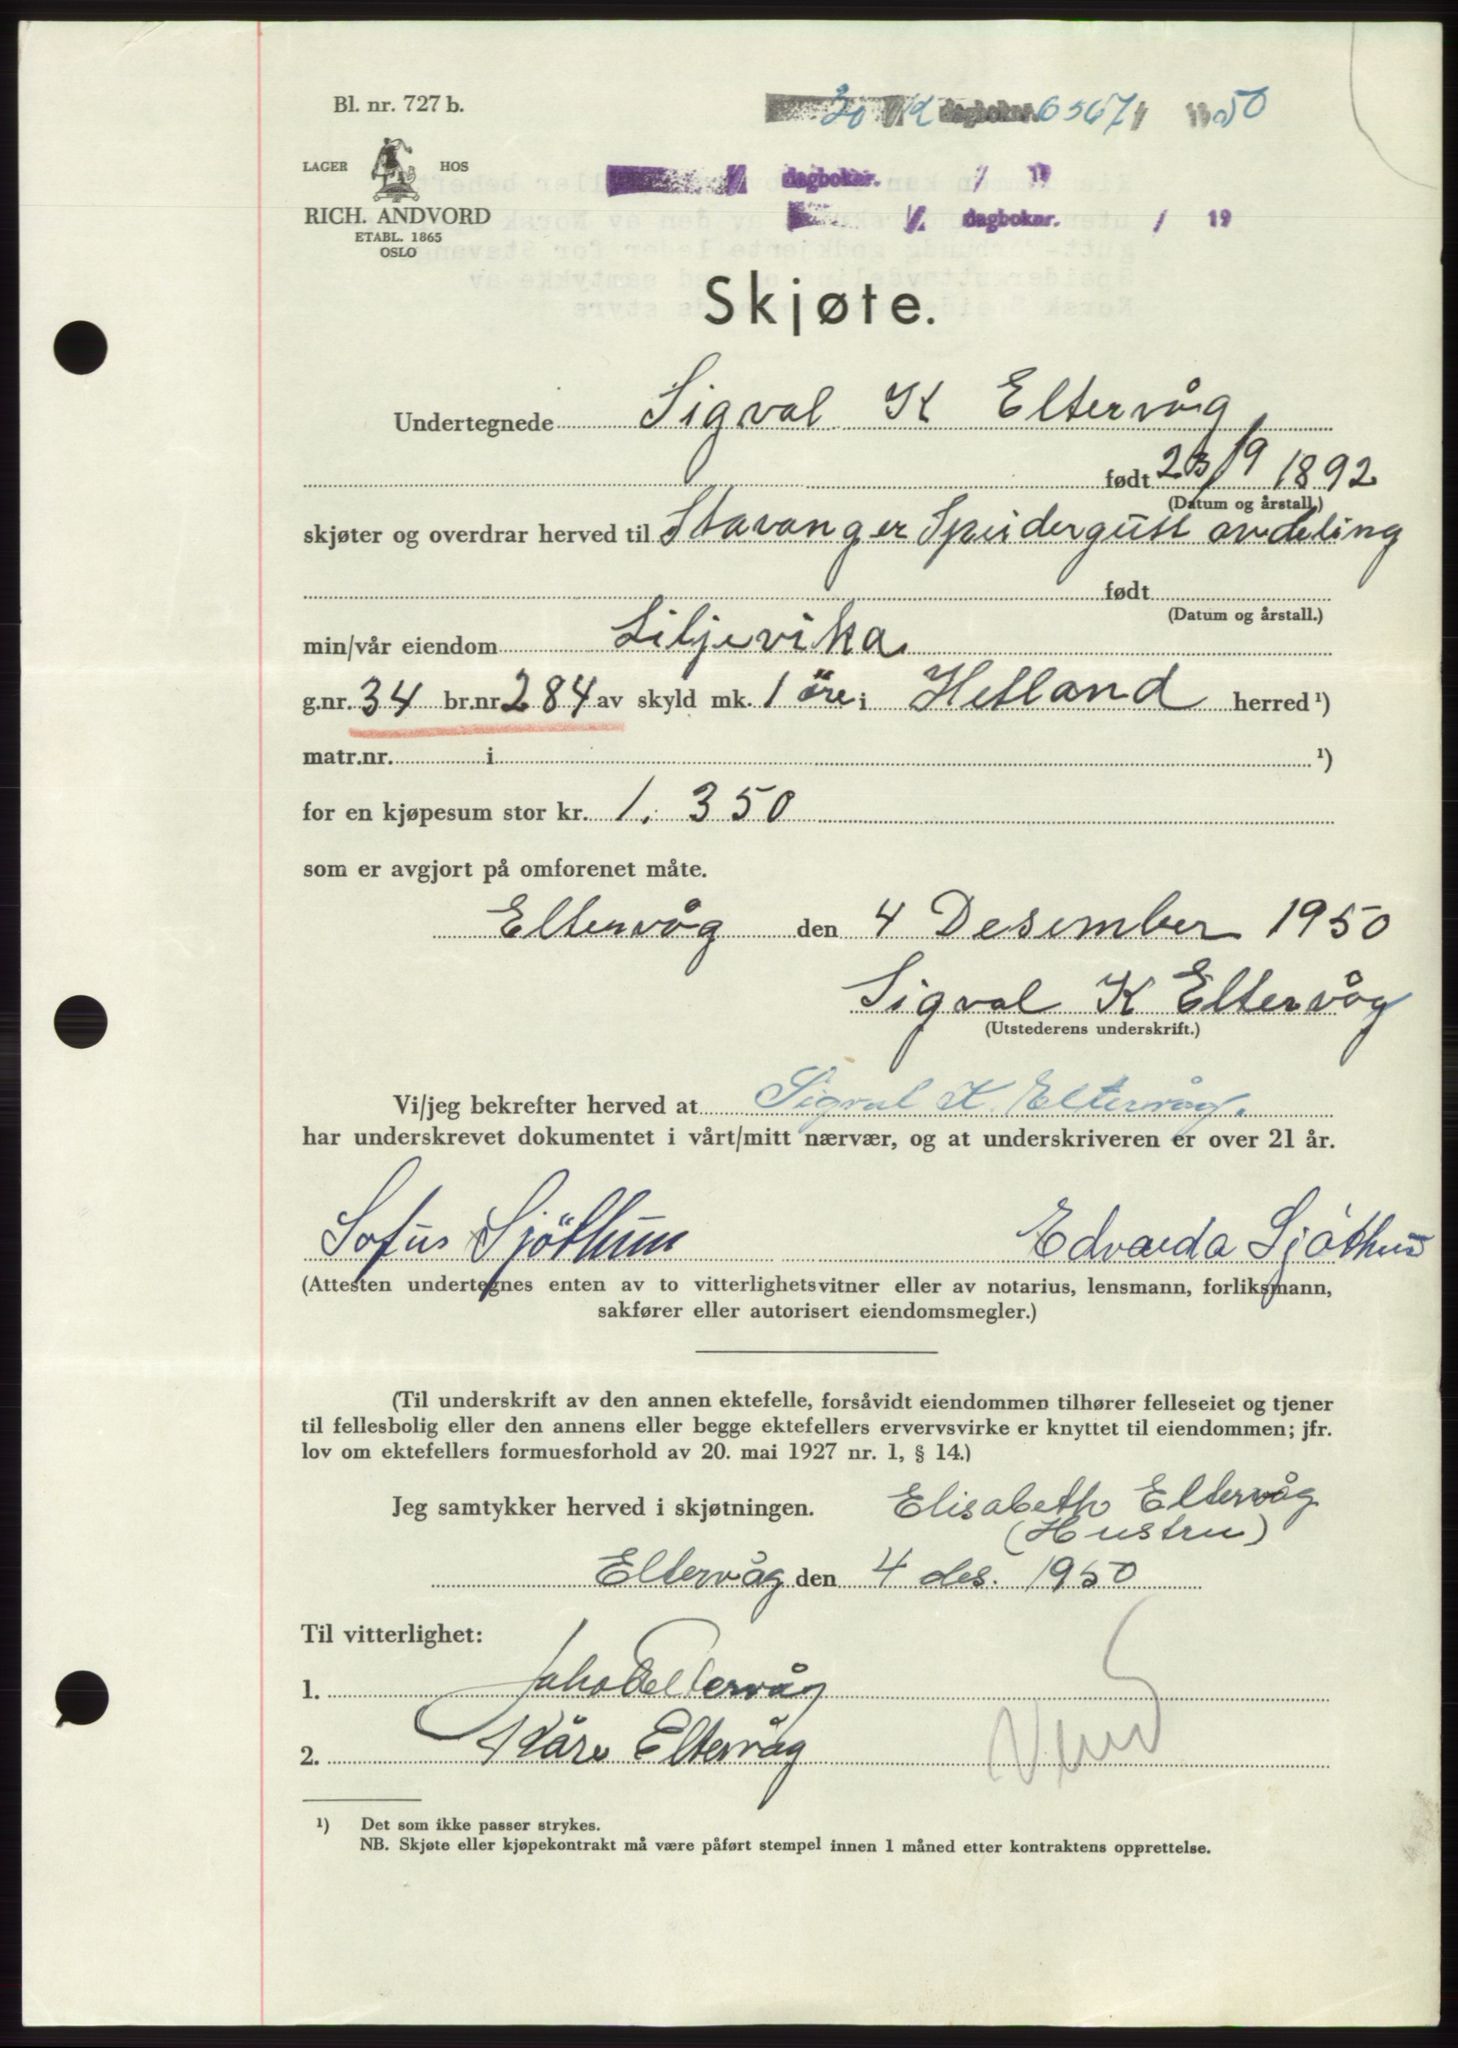 Bl. nr. 727 b.
LAGER HOS
RICH. ANDVORD
ETABL. 1865
OSLO
20/12 dagboknr. 6567 1950
dagboknr. / 19
dagboknr. / 19
Skjøte.
Undertegnede Sigval K Eltervåg
født 23/9 1892
(Datum og årstall.)
skjøter og overdrar herved til Stavanger Speidergutt avdeling
født
(Datum og årstall.)
min/vår eiendom Liljevika
g.nr. 34 br.nr. 284 av skyld mk. 1 öre i Hetland herred ¹)
matr.nr. i ¹)
for en kjøpesum stor kr. 1. 350
som er avgjort på omforenet måte.
Eltervåg den 4 Desember 1950
Sigval K Eltervåg
(Utstederens underskrift.)
Vi/jeg bekrefter herved at Sigval K. Eltervåg.
har underskrevet dokumentet i vårt/mitt nærvær, og at underskriveren er over 21 år.
Sofus Sjöthun Edvarda Sjöthun
(Attesten undertegnes enten av to vitterlighetsvitner eller av notarius, lensmann, forliksmann,
sakfører eller autorisert eiendomsmegler.)
(Til underskrift av den annen ektefelle, forsåvidt eiendommen tilhører felleseiet og tjener
til fellesbolig eller den annens eller begge ektefellers ervervsvirke er knyttet til eiendommen; jfr.
lov om ektefellers formuesforhold av 20. mai 1927 nr. 1, § 14.)
Jeg samtykker herved i skjøtningen. Elisabeth Eltervåg
(Hustru)
Eltervåg den 4 des. 1950
Til vitterlighet:
1. Jakob Eltervåg
2. Kåre Eltervåg
¹) Det som ikke passer strykes.
NB. Skjøte eller kjøpekontrakt må være påført stempel innen 1 måned etter kontraktens opprettelse.